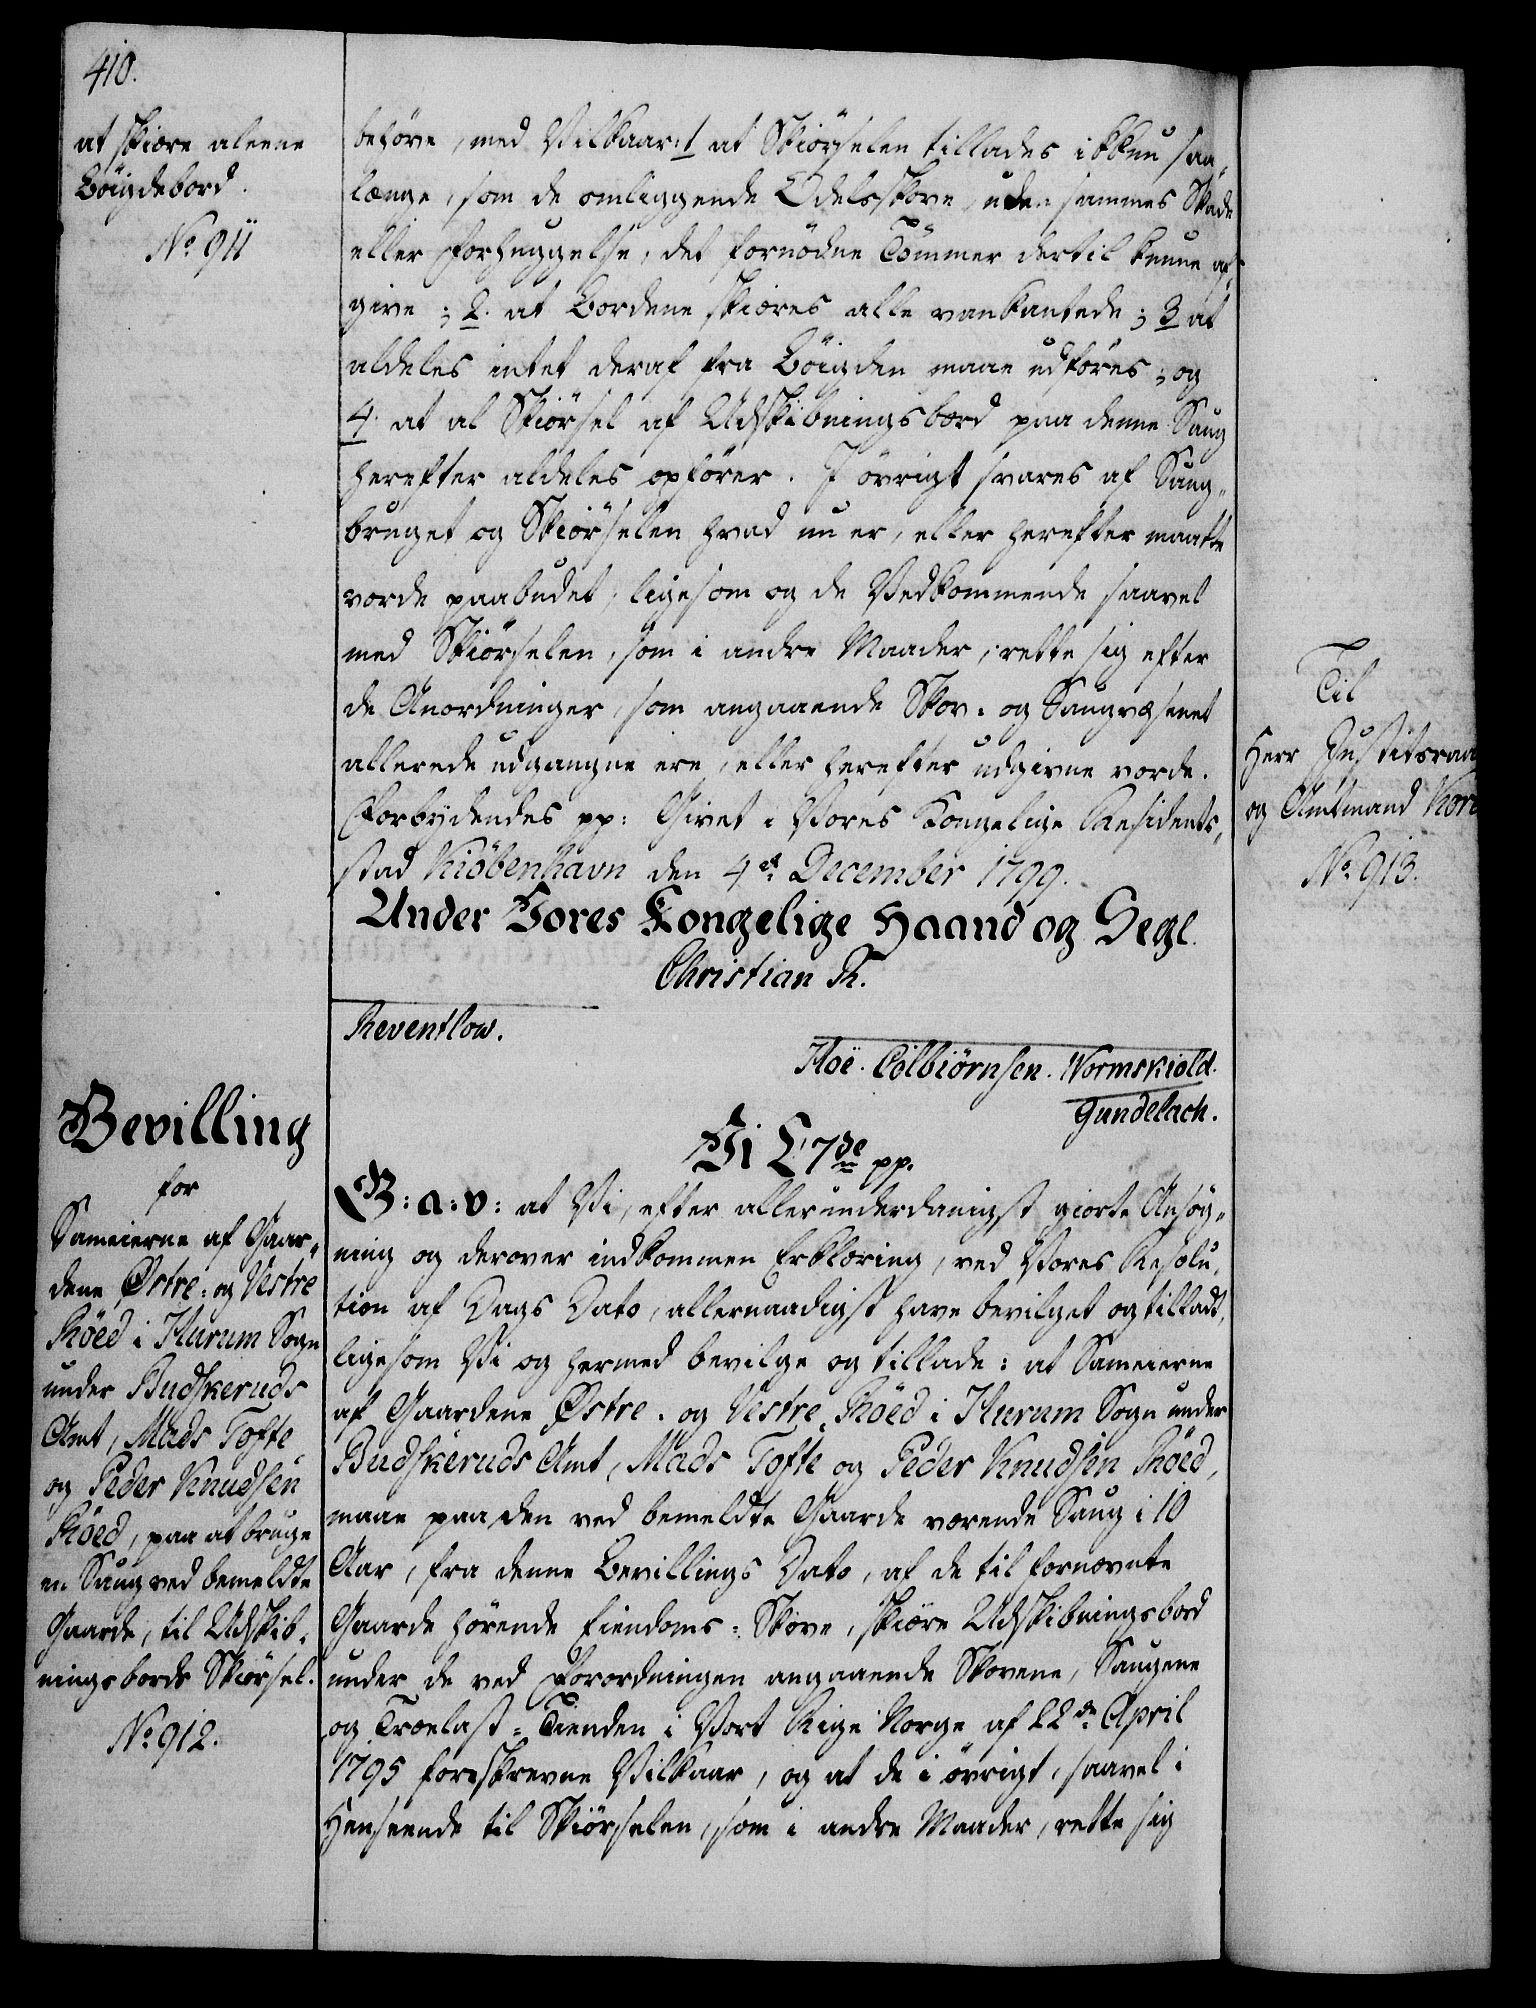 410.
at skiære aleene
Böigdebord.
No 911
behöve, med Vilkaar: 1 at Skiörselen tillades ikkun saa„
længe, som de omliggende Odelsskove, uden sammes Skade
eller Forhuggelse, det fornödne Tömmer dertil kunne af„
give; 2. at Bordene skiæres alle vankantede; 3 at
aldeles intet deraf fra Böigden maae udföres; og
4. at al Skiörsel af Udskibningsbord paa denne Saug
herefter aldeles ophörer. I övrigt svares af Saug„
bruget og Skiörselen hvad nu er, eller herefter maatte
vorde paabudet; ligesom og de Vedkommende saavel
med Skiörselen, som i andre Maader, rette sig efter
de Anordninger, som angaaende Skov- og Saugvæsenet
allerede udgangne ere, eller herefter udgivne vorde.
Forbydendes pp: Givet i Vores Kongelige Residents„
stad Kiöbenhavn den 4de December 1799.
Under Vores Kongelige Haand og Segl.
Christian R.
Reventlow.
Hoë. Colbiørnsen. Wormskiold.
Gundelach.
Bevilling
for
Sameierne af Gaar„
dene Østre- og Vestre
Röed i Hurum Sogn
under Budskeruds
Amt, Mads Tofte
og Peder Knudsen
Röed, paa at bruge
en Saug ved bemeldte
Gaarde, til Udskib„
ningsbords Skiörsel.
No 912.
Vi C 7de pp.
G: a: v: at Vi, efter allerunderdanigst giorte Ansög„
ning og derover indkommen Erklæring, ved Vores Resolu„
tion af Dags Dato, allernaadigst have bevilget og tilladt,
ligesom Vi og hermed bevilge og tillade: at Sameierne
af Gaardene Østre- og Vestre Röed i Hurum Sogn under
Budskeruds Amt, Mads Tofte og Peder Knudsen Röed,
maae paa den ved bemeldte Gaarde værende Saug i 10
Aar, fra denne Bevillings Dato, af de til fornævnte
Gaarde hörende Eiendoms-Skove, skiære Udskibningsbord
under de ved Forordningen angaaende Skovene, Saugene
og Trælast-Tienden i Vort Rige Norge af 22de April
1795 foreskrevne Vilkaar, og at de i övrigt, saavel i
Henseende til Skiörselen, som i andre Maader, rette sig
Til
Herr Justitsraa
og Amtmand
No 913.